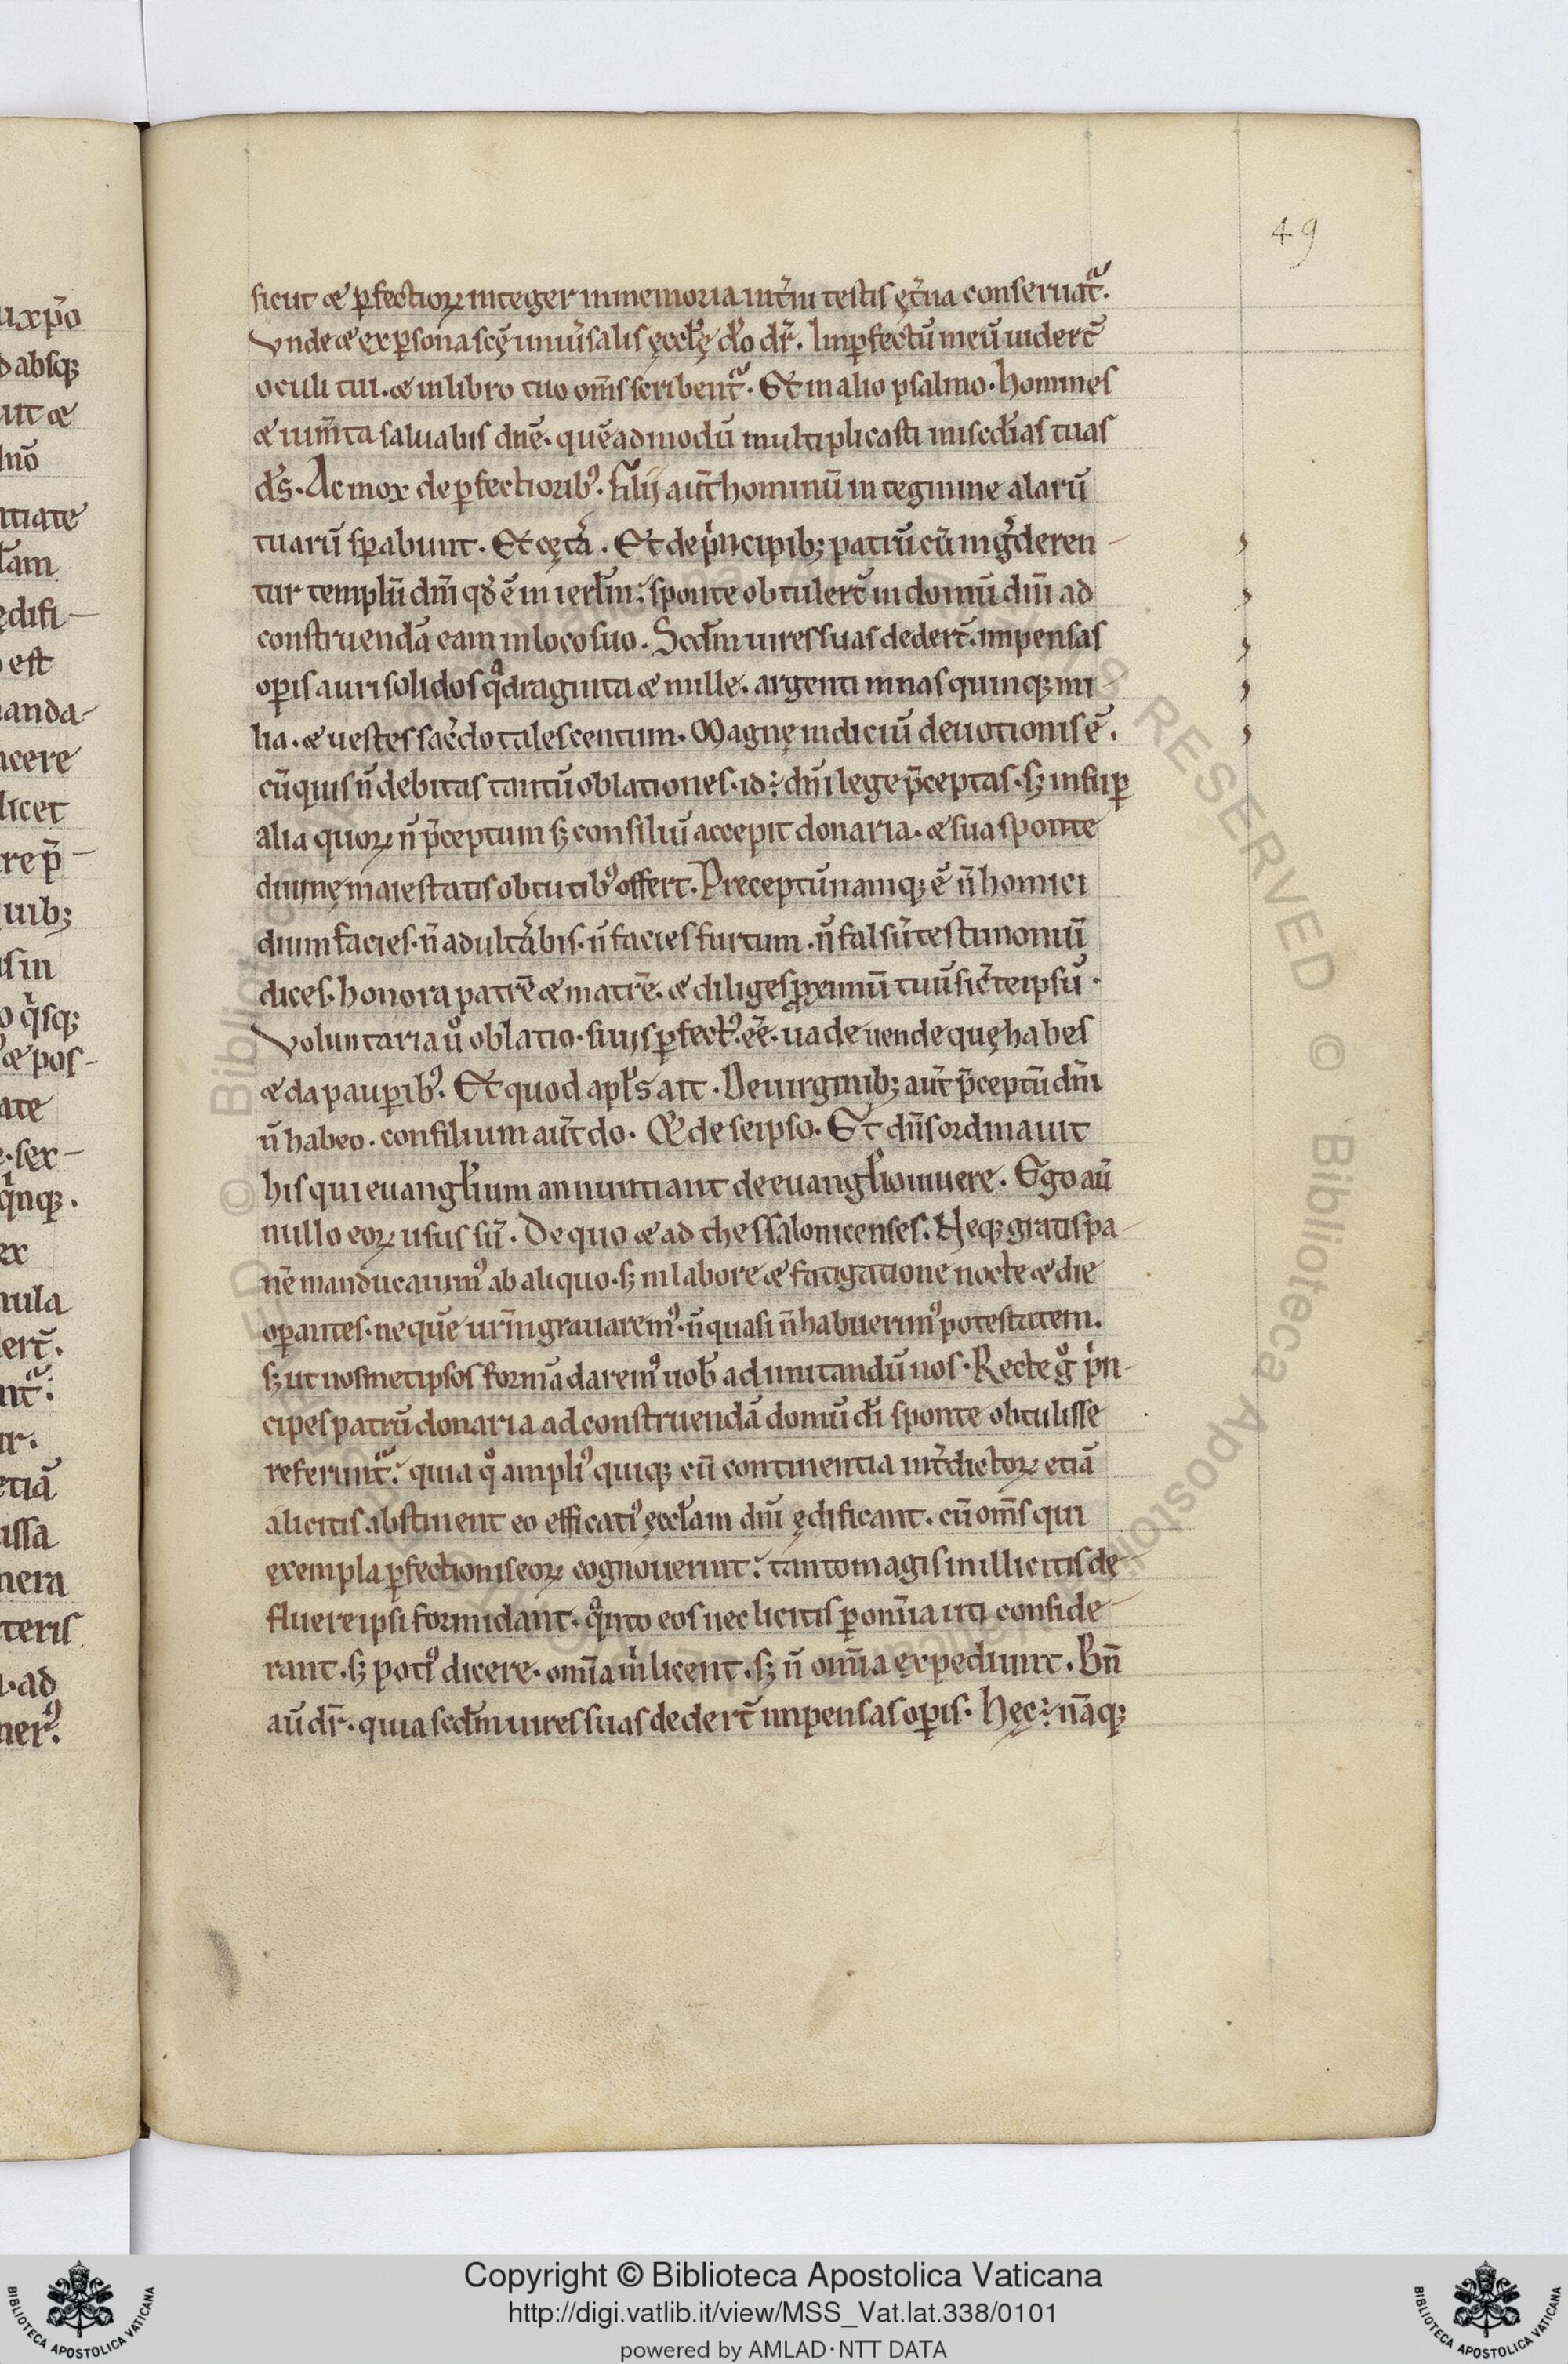 49
sicut & ꝑfectioꝝ integer in memoria int̾ni testis ęt̾na conseruat᷑.
Vnde & ex ꝑsona scę̄ uniu̾salis ęccł̾ę dō dr̄. Inꝑfectū meū uidert̄
oculi tui. & in libro tuo om̄s scribent᷑. Et in alio psalmo. homines
& ium̄ta saluabis dn̄e. quē admodū multiplicasti misedias tuas
d̄s. Ac mox de ꝑfectiorib᷒. Filij aūt hominū in tegmine alarū
tuarū sꝑabunt. Et cęt̾a. Et de p̾ncipib; patrū cū ing̾deren-
tur templū dn̄i qđ ē in ierl̄m. sponte obtulert̄ in domū dn̄i ad
construendā eam in loco suo. Scdm̄ uires suas dedert̄. impensas
oꝑis auri solidos qͣdraginta & mille. argenti mnas quinq; mi
lia. & uestes sac̾dotales centum. Magnę indiciū deuotionis ē.
cū quis n̄ debitas tantū oblationes. id ÷ dn̄i lege p̄ceptas. sꝫ insuꝑ
alia quoꝝ n̄ p̄ceptum sꝫ consiliū accepit donaria. & sua sponte
diuinę maiestatis obtutib᷒ offert. Preceptū namq; ē n̄ homici
dium facies. n̄ adult̾abis. n̄ facies furtum. n̄ falsū testimoniū
dices. honora patrē & matrē. & diliges ꝓximū tuū sic̄ te ipsū.
Voluntaria u̾o oblatio. si uis ꝑfect᷒ eē. uade uende quę habes
& da pauꝑib᷒. Et quod apl̄s ait. De uirginib; aūt p̄ceptū dn̄i
n̄ habeo. consilium aūt do. Et de se ipso. Et dn̄s ordinauit
his qui euangl̄ium annuntiant de euangl̄io uiuere. Ego aū
nullo eoꝝ usus sū. De quo & ad thessalonicenses. Neq; gratis pa-
nē manducauim᷒ ab aliquo. sꝫ in labore & fatigatione nocte & die
oꝑantes. ne quē ur̄m grauarem᷒. n̄ quasi n̄ habuerim᷒ potestatem.
sꝫ ut nosmetipsos formā darem᷒ uob̄ ad imitandū nos. Recte gͦ p̾n-
cipes patrū donaria ad construendā domū di̅ sponte obtulisse
referunt᷑. quia qͦ ampli᷒ quiq; cū continentia int̾dictoꝝ etiā
a licitis abstinent eo efficati᷒ ęccl̄am dn̄i ędificant. cū om̄s qui
exempla ꝑfectionis eoꝝ cognouerint. tanto magis in illicitis de-
fluere ipsi formidant. qͣnto eos nec licitis ꝑ om̄ia uti conside-
rant. sꝫ poti᷒ dicere. om̄ia m̾ licent. sꝫ n̄ om̄ia expediunt. Bn̄
aū dr̄. quia scdm̄ uires suas dedert̄ impensas oꝑis. Hęc ÷ nāq;
Copyright © Biblioteca Apostolica Vaticana
http://digi.vatlib.it/view/MSS_Vat.lat.338/0101
powered by AMLAD·NTT DATA